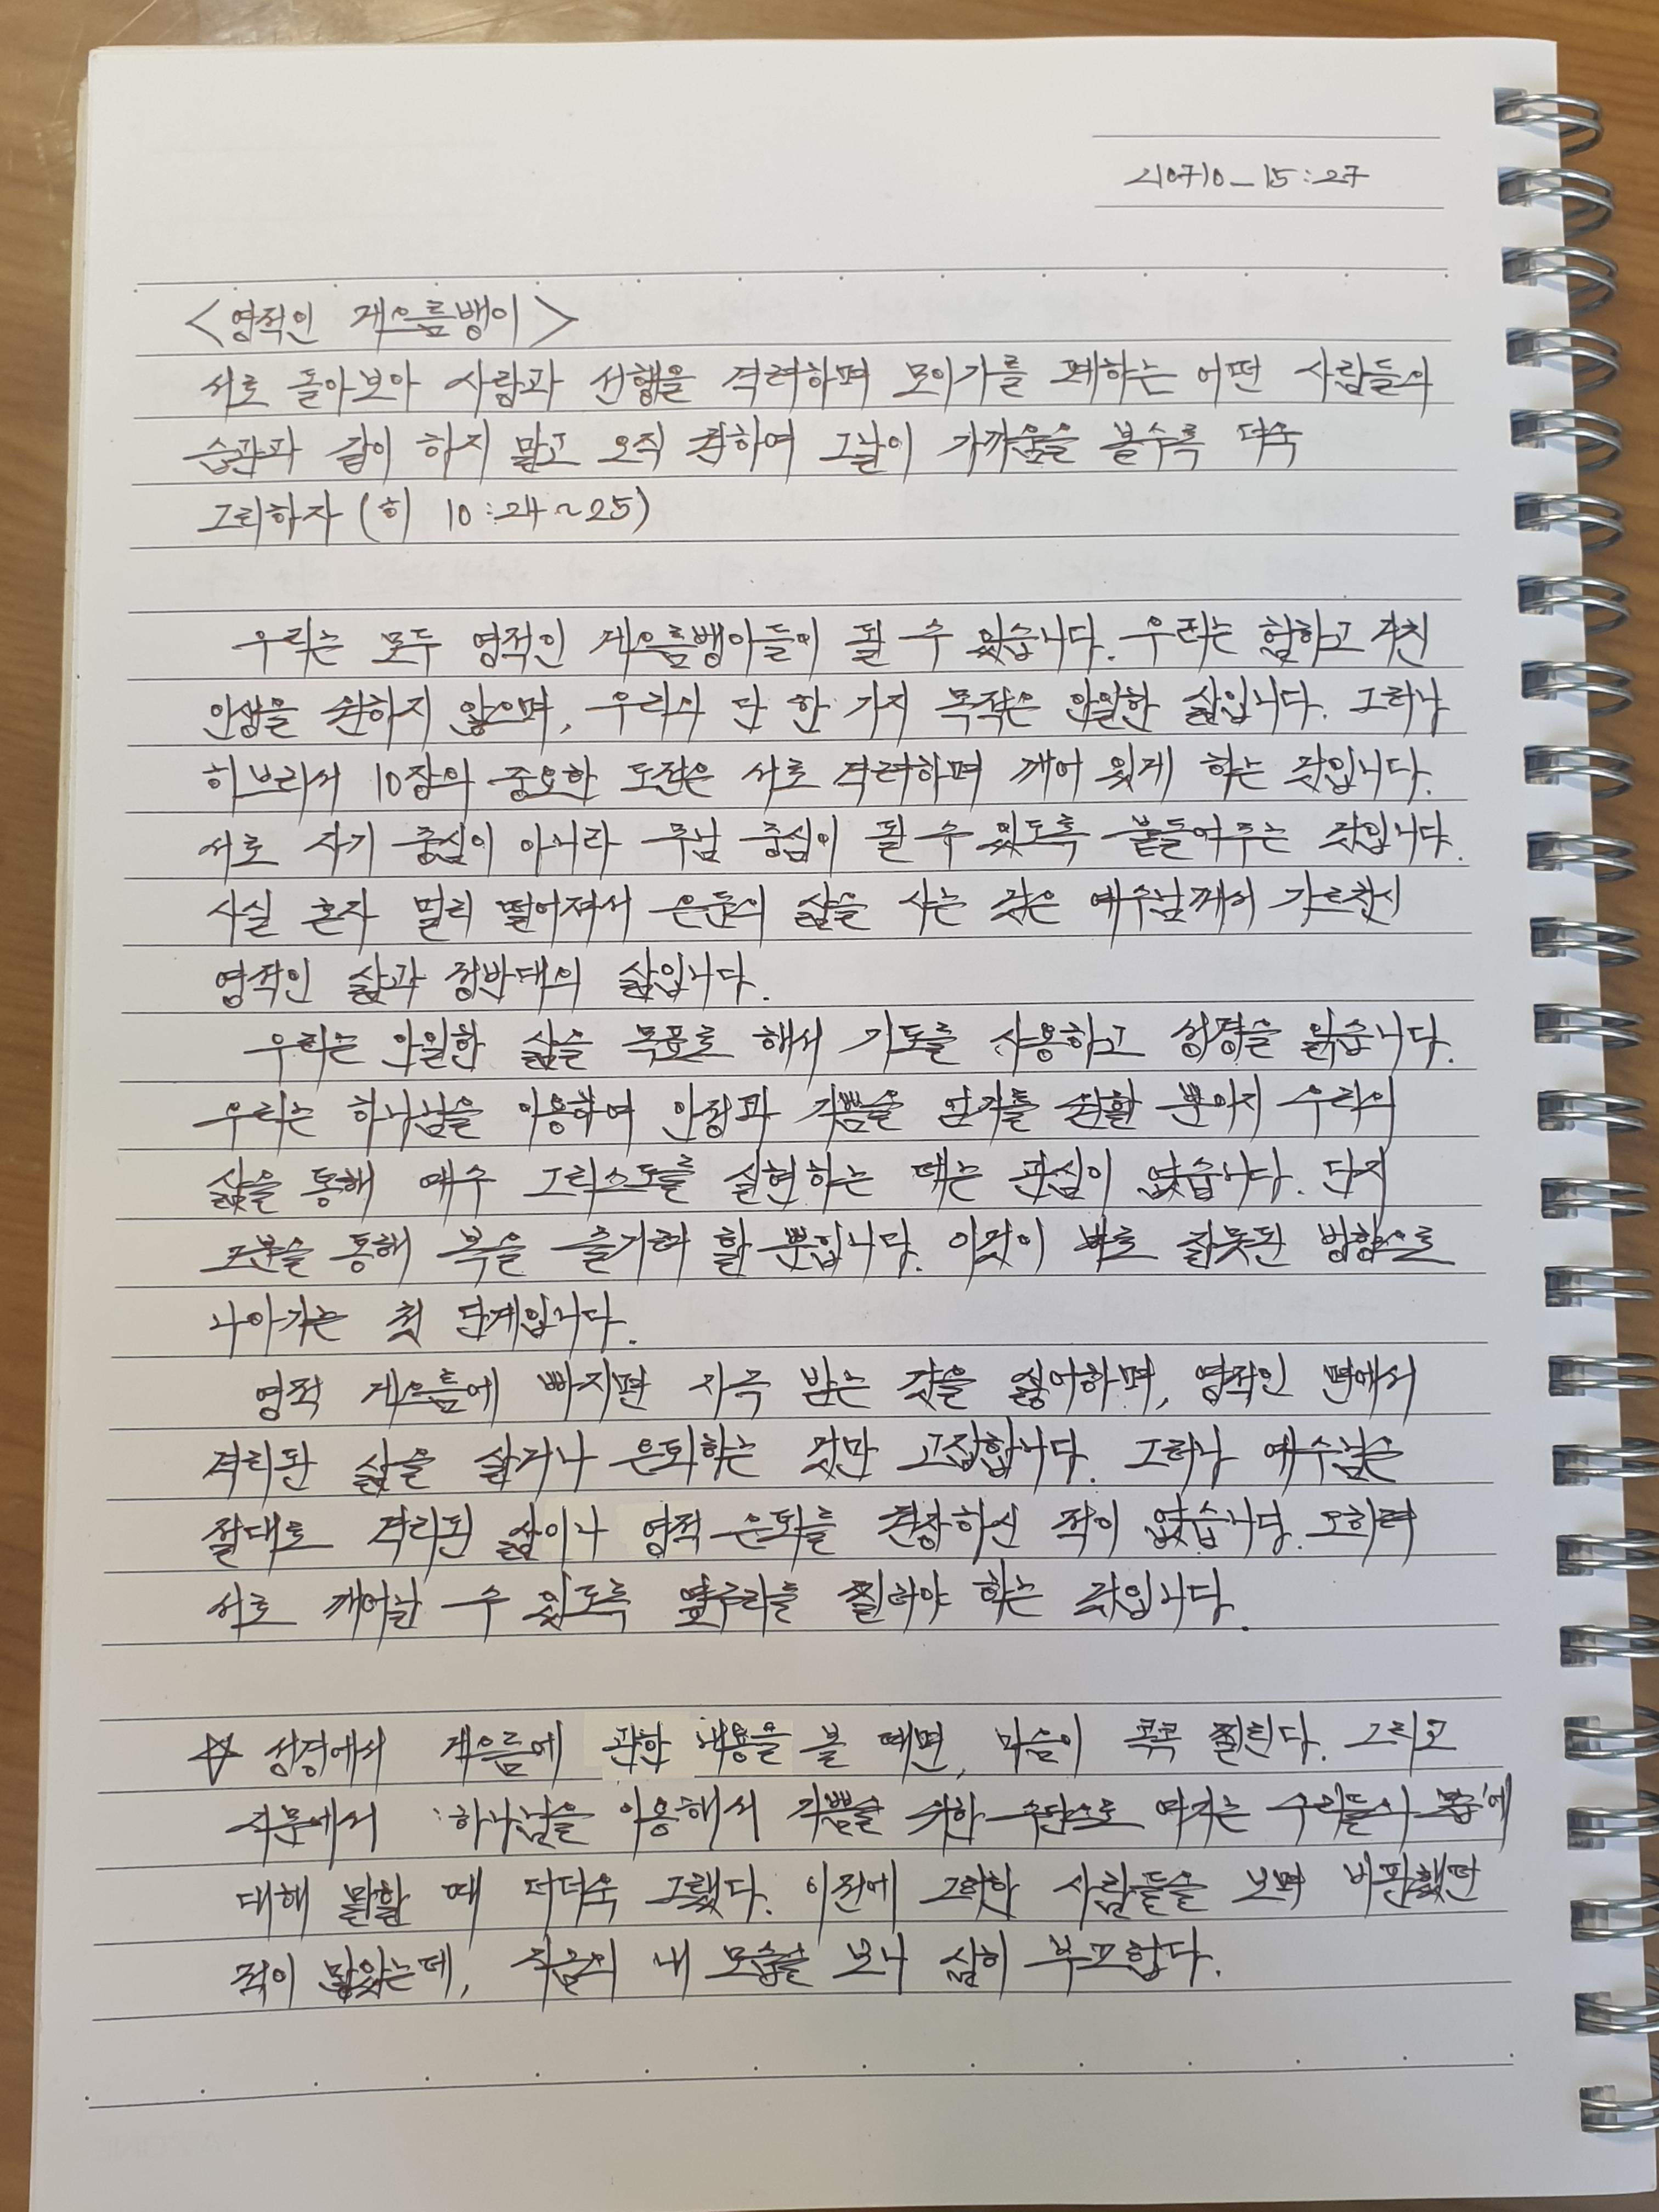 210710_15:27
<영적인 게으름뱅이>
서로 돌아보아 사랑과 선행을 격려하며 모이기를 폐하는 어떤 사람들의
습관과 같이 하지 말고 오직 권하여 그날이 가까움을 볼수록 더욱
그리하자 (히 10:24~25)
우리는 모두 영적인 게으름뱅이들이 될 수 있습니다. 우리는 험하고 거친
인생을 원하지 않으며, 우리의 단 한 가지 목적은 안일한 삶입니다. 그러나
히브리서 10장의 중요한 도전은 서로 격려하며 깨어 있게 하는 것입니다.
서로 자기 중심이 아니라 주님 중심이 될 수 있도록 붙들어주는 것입니다.
사실 혼자 멀리 떨어져서 은둔의 삶을 사는 것은 예수님께서 가르치신
영적인 삶과 정반대의 삶입니다.
우리는 안일한 삶을 목표로 해서 기도를 사용하고 성경을 읽습니다.
우리는 하나님을 이용하여 안정과 기쁨을 얻기를 원할 뿐이지 우리의
삶을 통해 예수 그리스도를 실현하는 데는 관심이 없습니다. 단지
그분을 통해 복을 즐기려 할 뿐입니다. 이것이 바로 잘못된 방향으로
나아가는 첫 단계입니다.
영적 게으름에 빠지면 자극 받는 것을 싫어하며, 영적인 면에서
격리된 삶을 살거나 은퇴하는 것만 고집합니다. 그러나 예수님은
절대로 격리된 삶이나 영적 은퇴를 권장하신 적이 없습니다. 오히려
서로 깨어날 수 있도록 옆구리를 찔러야 하는 것입니다.
☆ 성경에서 게으름에 관한 내용을 볼 때면, 마음이 콕콕 찔린다. 그리고
지문에서 '하나님을 이용해서 기쁨을 위한 수단으로 여기는 우리들의 모습'에
대해 말할 때 더더욱 그랬다. 이전에 그러한 사람들을 보며 비판했던
적이 많았는데, 지금의 내 모습을 보니 심히 부끄럽다.